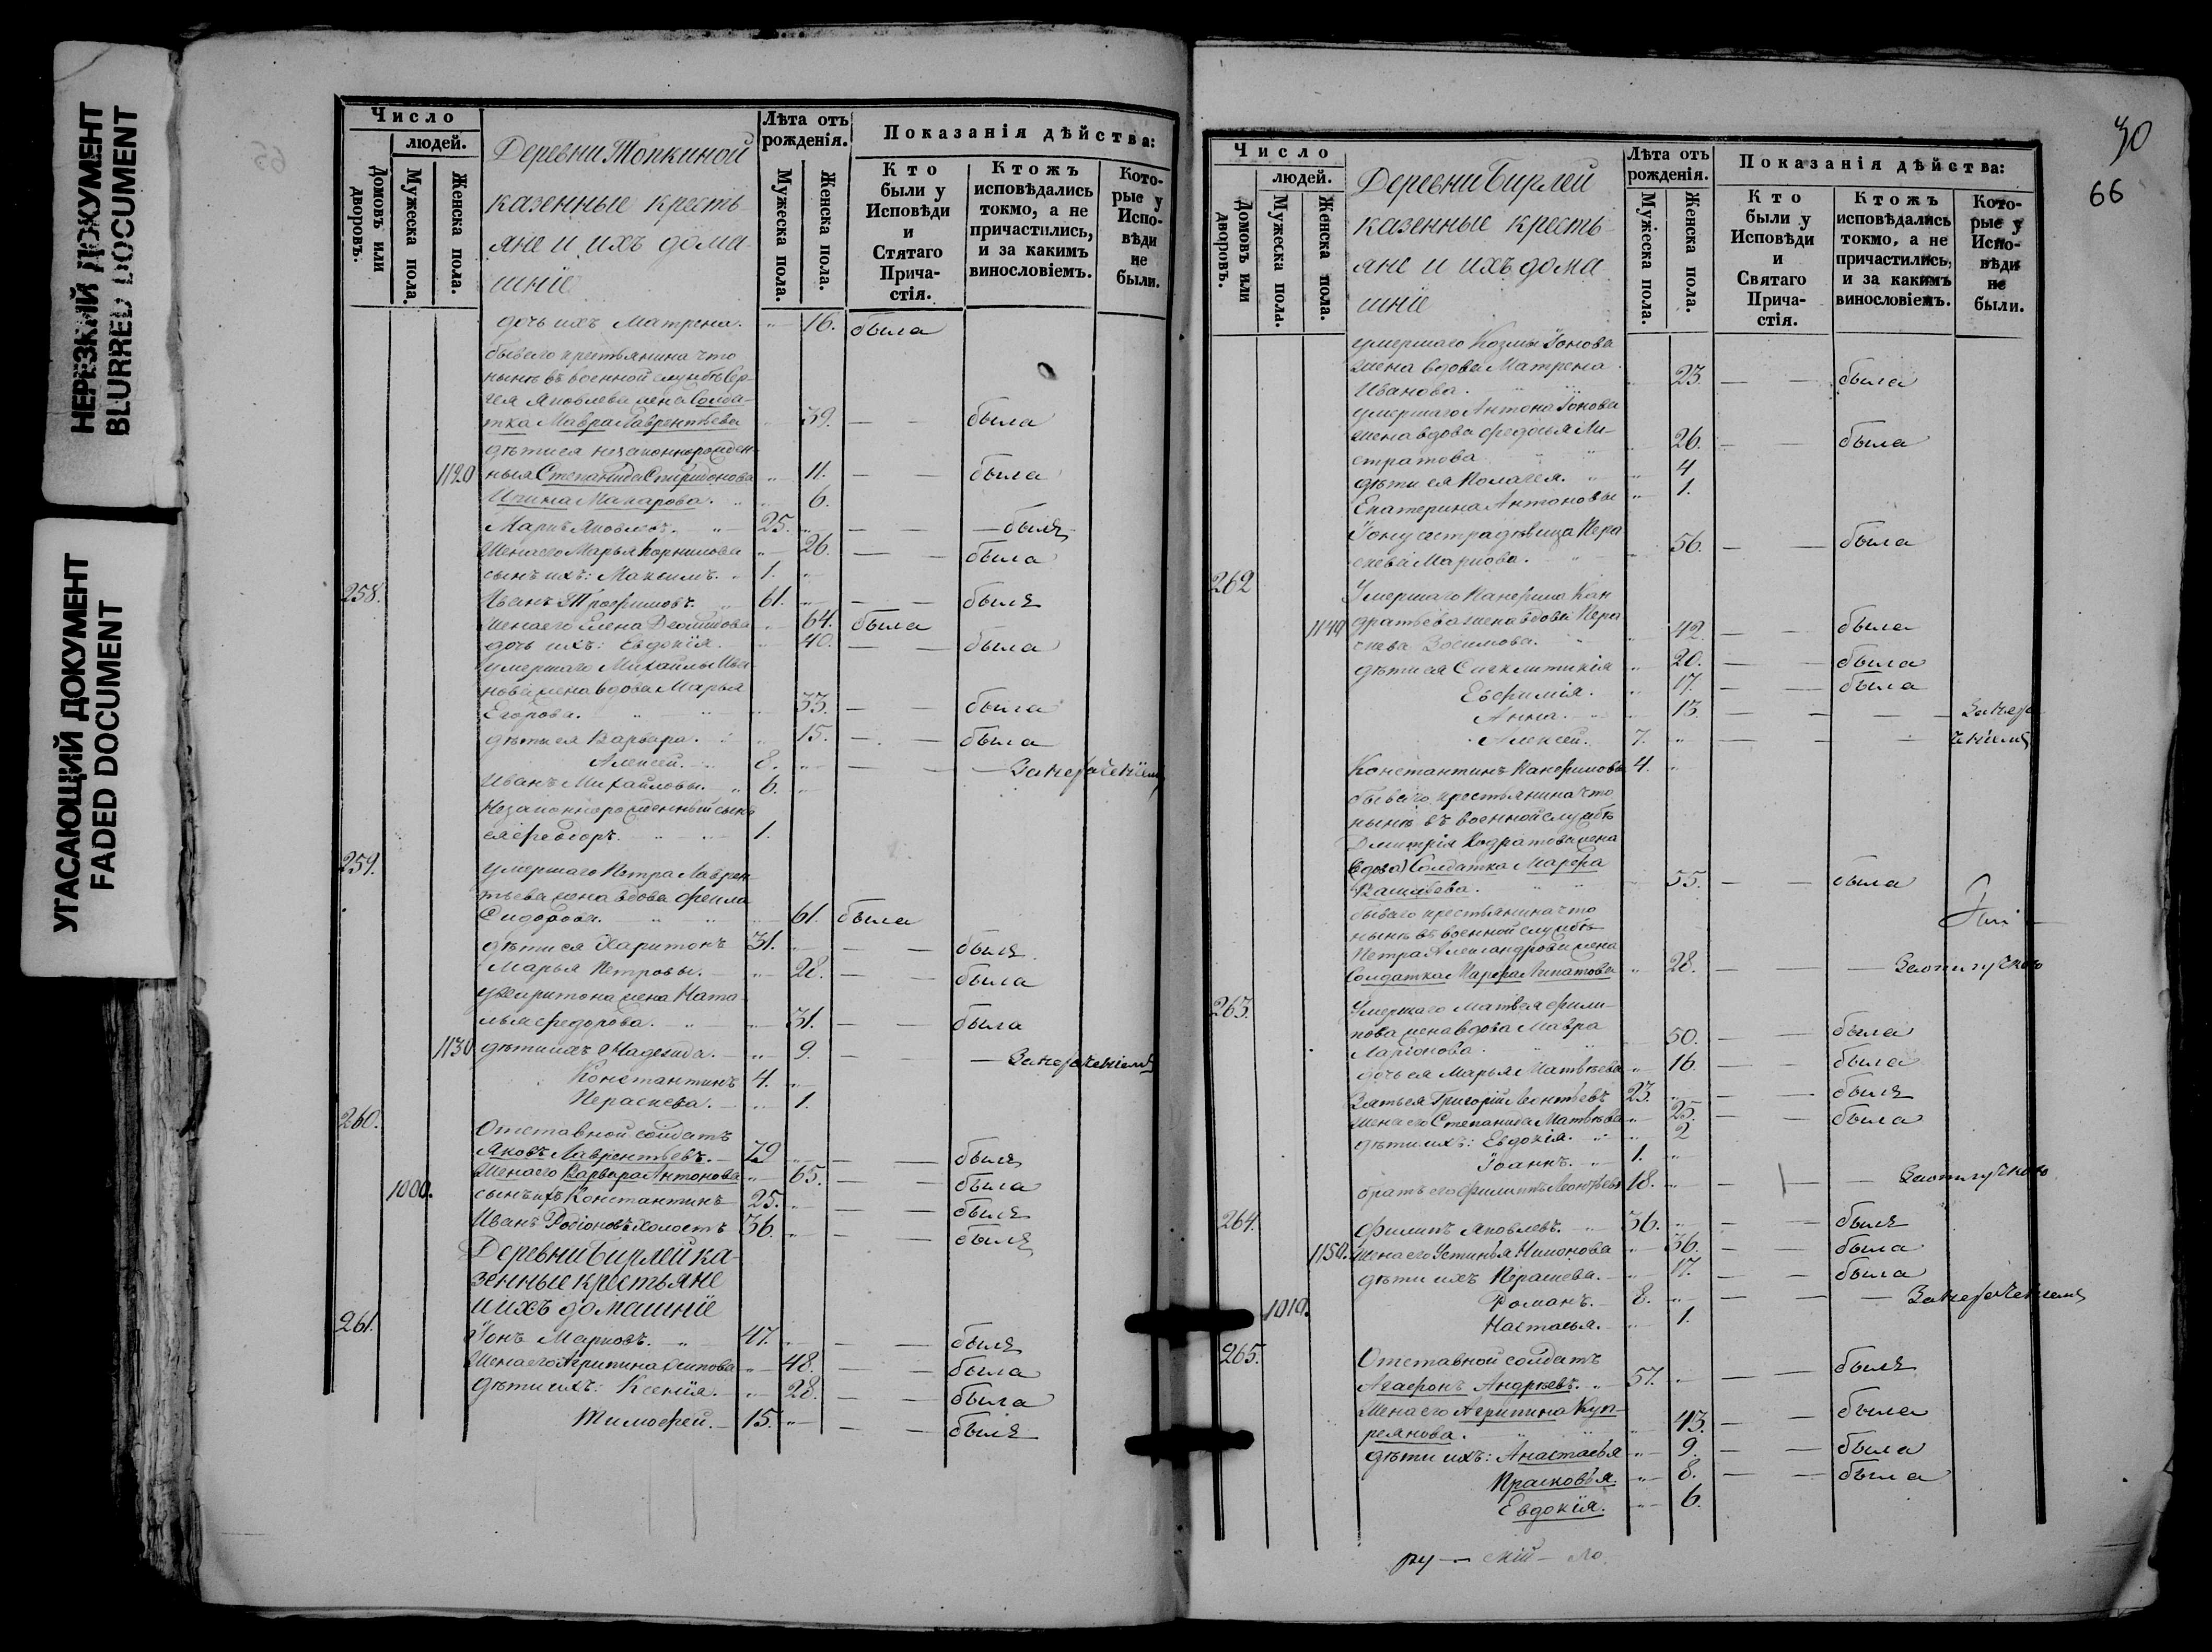 НЕРЕЗКИЙ ДОКУМЕНТ
BLURRED DOCUMENT
УГАСАЮЩИЙ ДОКУМЕНТ
FADED DOCUMENT
Число
людей.
Домовъ или дворовъ.
Мужеска пола.
Женска пола.
Деревни Топкиной
казенные кресть-
яне и ихъ дома-
шніе
Лѣта отъ рожденія.
Мужеска пола.
Женска пола.
Показанія дѣйства:
Кто были у Исповѣди и Стятаго Прича-стія.
Ктожъ исповѣдались токмо, а не причастились, и за какимъ винословіемъ.
Кото-рые у Испо-вѣди не были.
дочь ихъ Матрена. 16. была
бываго крестьянина что
нынѣ въ военной службѣ Сер-
гея Яковлева жена Солда-
тка Мавра Лаврентьева 39. — — была
дѣти ея незаконнорожден-
1120 ныя Степанида Спиридонова 11. — — была
Макарова. 6.
Яковлевъ. 25. — — былъ
Жена его Марья Корнилова 26. — — была
сынъ ихъ: Максимъ. 1.
258. Иванъ Трофимовъ. 61. — — былъ
Жена его Елена 64. была
дочь ихъ: Евдокія. 40. — — была
умершаго Михайлы Ива-
нова жена вдова Марья
Егорова. 33. — — была
дѣти ея Варвара. 15. — — была
Алексей. 8. — — —
Иванъ Михайловы. 6.
Незаконнорожденный сынъ
ея Федоръ. 1.
259. умершаго Петра Лаврен-
тьева жена вдова
Сидорова. 61. была
дѣти ея Харитонъ 31. — — былъ
Марья Петровы. 28. — — была
у Харитона жена Ната-
лья Федорова. 31. — — была
1130 дѣти ихъ Надежда. 9. — — —
Константинъ 4.
Параскева. 1.
260. Отставной солдатъ
Яковъ Лаврентьевъ. 79 — — былъ
Жена его Варвара Антонова 65. — — была
1000. сынъ ихъ Константинъ 25. — — былъ
Иванъ Родіоновъ холостъ 36. — — былъ
Деревни Бирлей ка-
зенные крестьяне
и ихъ домашніе
261. Іонъ Марковъ. 47. — — былъ
Жена его Агрипина Осипова 48. — — была
дѣти ихъ: Ксенія. 28. — — была
Тимофей. 15. — — былъ
30
66
Число
людей.
Домовъ или дворовъ.
Мужеска пола.
Женска пола.
Деревни Бирлей
казенные кресть-
яне и ихъ дома
шніе
Лѣта отъ рожденія.
Мужеска пола.
Женска пола.
Показанія дѣйства:
Кто были у Исповѣди и Святаго Прича-стія.
Ктожъ исповѣдались токмо, а не причастились, и за какимъ винословіемъ.
Кото-рые у Испо-вѣди не были.
умершаго Козмы Іонова
жена вдова Матрена
Иванова. 23. — — была
умершаго Антона Іонова
жена вдова Федосья Ли-
стратова 26. — — была
дѣти ея Пелагея. 4
Екатерина Антоновы 1.
Іону сестра дѣвица Пера
скева Маркова. 56. — — была
262 Умершаго
жена вдова Пера
скева Зосимова. 42. — — была
дѣти ея Сигклитикія 20. — — была
Евфимія. 17. — — была
Анна. 13. — — —
Алексей. 7. — — —
Константинъ 4.
бываго крестьянина что
нынѣ въ военной службѣ
Дмитрія жена
вдова Солдатка Марфа
55. — — была
бываго крестьянина что
нынѣ въ военной службѣ
Петра Александрова жена
Солдатка Марфа Игнатова 28. — — — За отлучкою
263. Умершаго Матвея Фили-
пова жена вдова Мавра
Ларіонова. 50. — — была
дочь ея Марья Матвѣева 16. — — была
Зять ея Григорій Леонтьевъ 23. — — былъ
жена его Степанида Матвѣева 25. — — была
дѣти ихъ: Евдокія. 2
Іоаннъ. 1.
братъ его Филипъ Леонтьевъ 18. — — За отлучкою
264. Филипъ Яковлевъ. 36. — — былъ
1150. жена его Устинья Никонова 36. — — была
дѣти ихъ Параскева. 17. — — была
1010. Романъ. 8. — — —
Настасья. 1.
265. Отставной солдатъ
Агафонъ Андрѣевъ. 57. — — былъ
Жена его Агрипина Куп-
реянова. 43. — — была
дѣти ихъ: Анастасья 9. — — была
Прасковья. 8. — — была
Евдокія. 6.